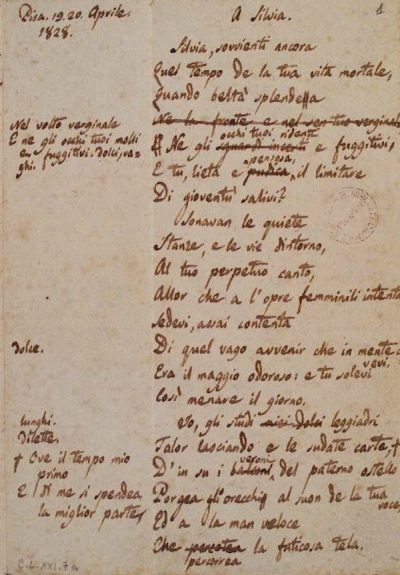 Pisa. 19. 20. Aprile.
1828.
A Silvia.
1
Silvia, sovvienti ancora
Quel tempo de la tua vita mortale,
Quando beltà splendea
Ne la fronte e nel sen tuo verginale
Nel volto verginale
E ne gli occhi tuoi molli
e fuggitivi. dolci, va-
ghi.
occhi tuoi ridenti
Ne gli sguardi incerti e fuggitivi,
pensosa,
E tu, lieta e pudica, il limitare
Di gioventù salivi?
Sonavan le quiete
Stanze, e le vie dintorno,
Al tuo perpetuo canto,
Allor che a l'opre femminili intenta
Sedevi, assai contenta
dolce.
Di quel vago avvenir che in mente
avevi.
Era il maggio odoroso: e tu solevi
Così menare il giorno.
lunghi.
Dilette.
Io, gli studi miei dolci leggiadri
Talor lasciando e le sudate carte, +
+ Ove il tempo mio
primo
E di me si spendea
la miglior parte,
veroni
D'in su i balconi, del paterno ostello
Porgea gli orecchi al suon de la tua
voce,
Ed a la man veloce
Che percotea la faticosa tela.
percorrea
C.L.XXI.7a